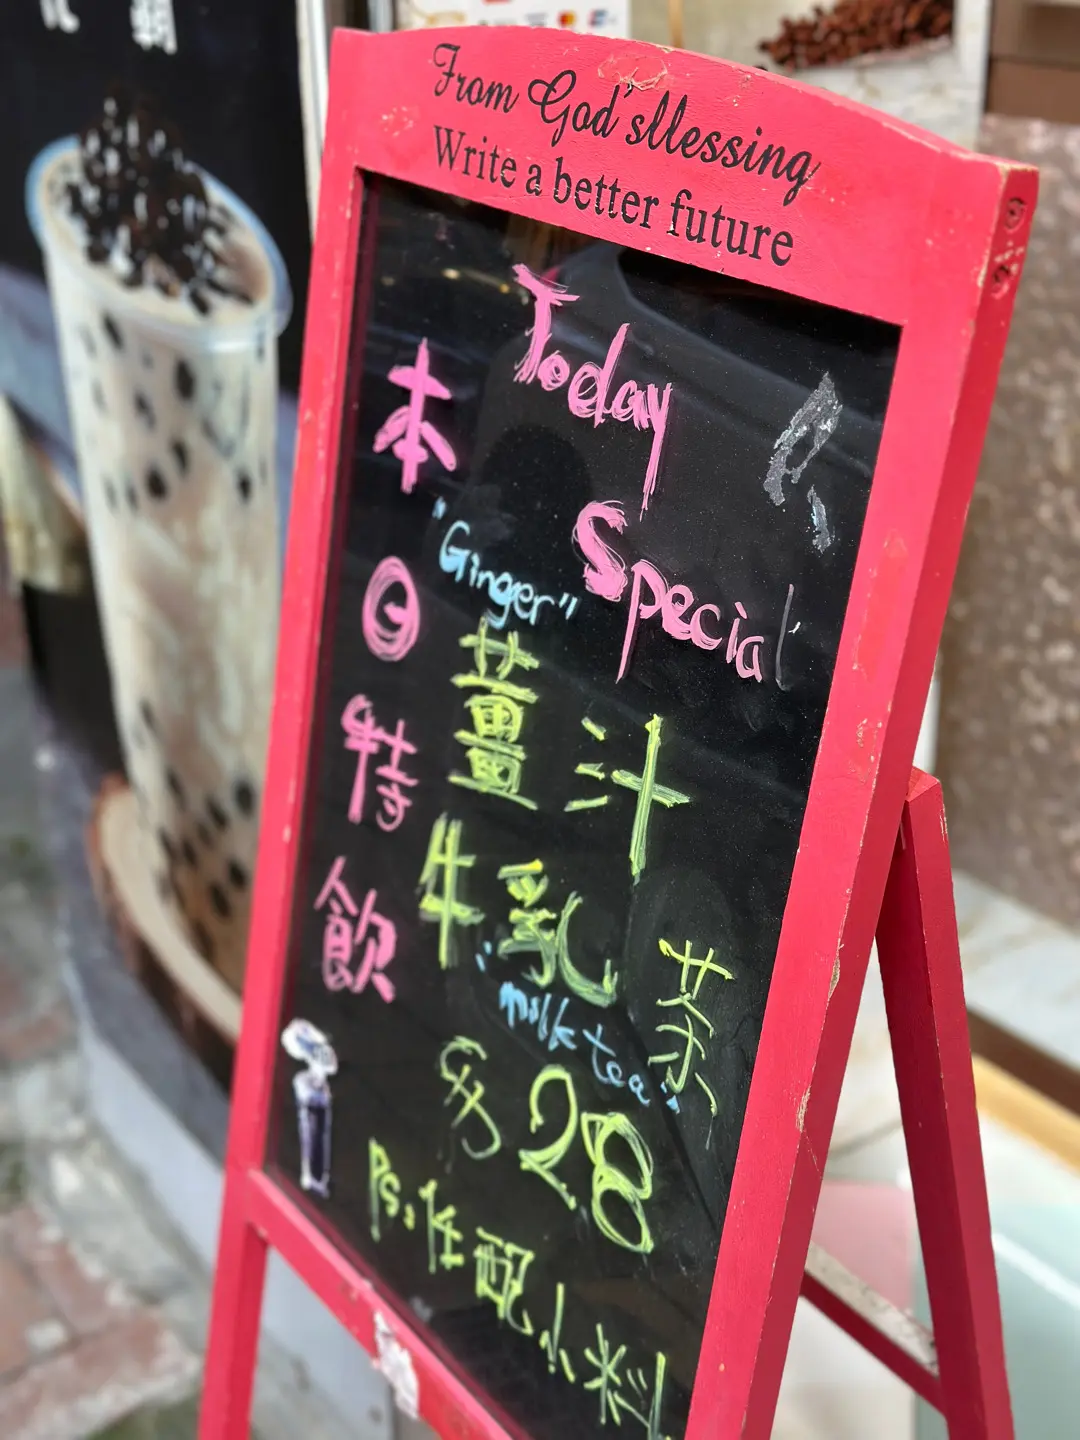 From God'sllessing
Write a better future
Today
Special
本日特飲
"Ginger"
薑汁
牛乳茶
"milk tea"
$28
Ps:任配小料